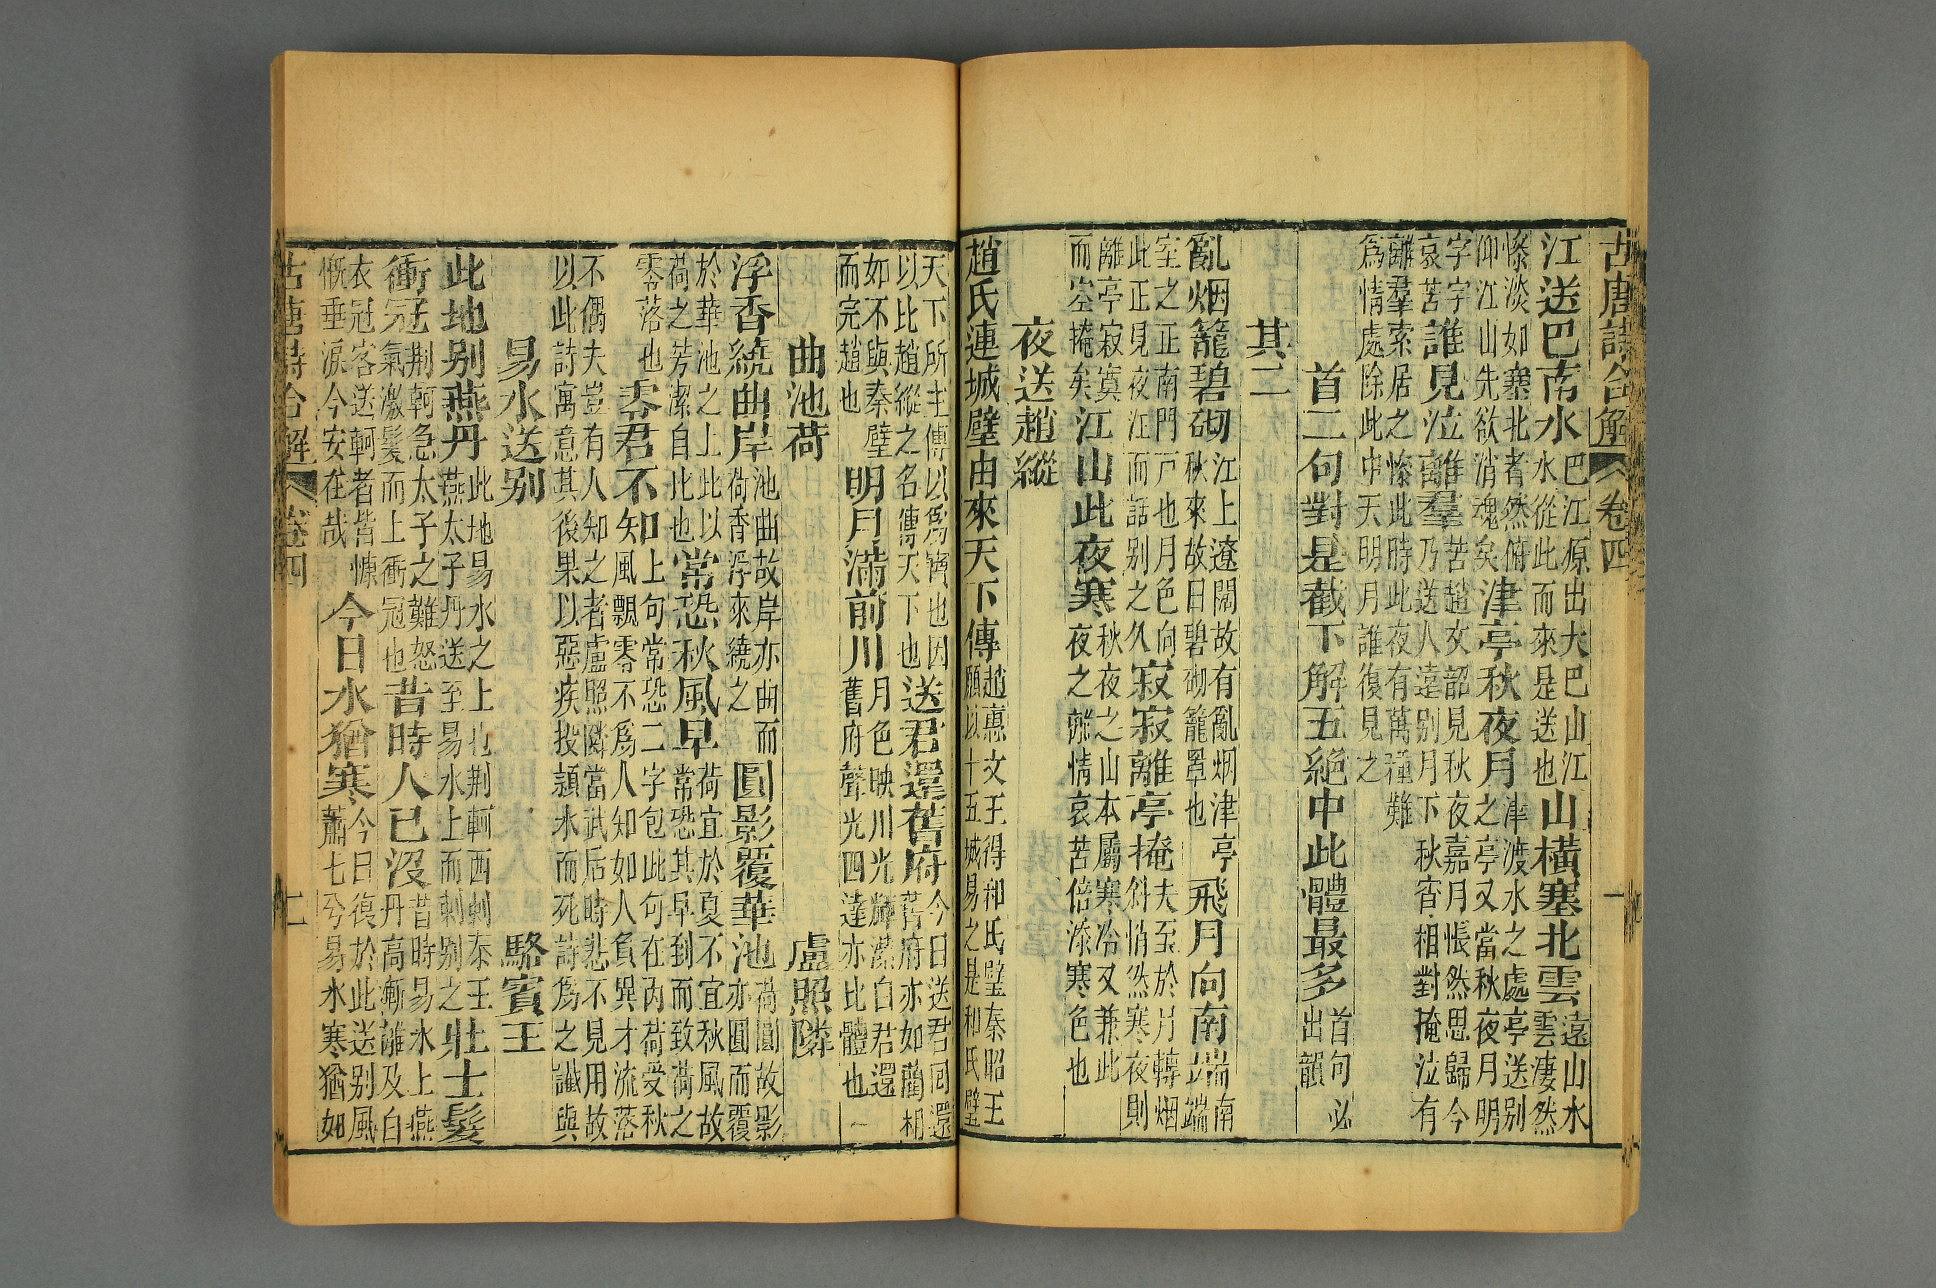 古唐詩合解 卷四 一
江送巴南水巴江原出大巴山江水從此而來是送也山橫塞北雲遠山水雲淒然
慘淡如塞北者然俯仰江山先欲消魂矣津亭秋夜月津渡水之處亭送别之亭又當秋夜月明
字字哀苦誰見泣離羣苦趙文韶見秋夜嘉月悵然思歸今乃送人遠别月下秋宵相對掩泣有
離羣索居之慘此時此夜有萬種難爲情處除此中天明月誰復見之
首二句對是截下解五絕中此體最多首句必出韻
其二
亂烟籠碧砌江上遼闊故有亂烟津亭秋來故曰碧砌籠罩也飛月向南端南端
室之正南門戸也月色向此正見夜江而話别之久寂寂離亭掩夫至於月轉烟斜悄然寒夜則
離亭寂寞而空掩矣江山此夜寒秋夜之山本屬寒冷又兼此夜之離情哀苦倍添寒色也
夜送趙縱
趙氏連城璧由來天下傳趙惠文王得和氏璧秦昭王願以十五城易之是和氏璧
天下所主傳以爲寶也因以比趙縱之名傳天下也送君還舊府今日送君回還舊府亦如藺相
如不與秦璧而完趙也明月滿前川月色映川光輝潔白君還舊府聲光四達亦比體也
曲池荷 盧照隣
浮香繞曲岸池曲故岸亦曲而荷香浮來繞之圓影覆華池荷圓故影亦圓而覆
於華池之上此以荷之芳潔自比也常恐秋風早荷宜於夏不宜秋風故常恐其早到而致荷之
零落也零君不知上句常恐二字包此句在内荷受秋風飄零不爲人知如人負異才流落
不偶夫豈有人知之者盧照隣當武后時悲不見用故以此詩寓意其後果以惡疾投潁水而死詩爲之讖與
易水送别 駱賓王
此地别燕丹此地易水之上北荆軻西刺秦王燕太子丹送至易水上而别之壯士髮
衝冠荆軻急太子之難怒氣激髮而上衝冠也昔時人已没昔時易水上燕丹高漸離及白
衣冠客送軻者皆慷慨垂淚今安在哉今日水猶寒今日復於此送别風蕭七兮易水寒猶如
古唐詩合解 卷四 二